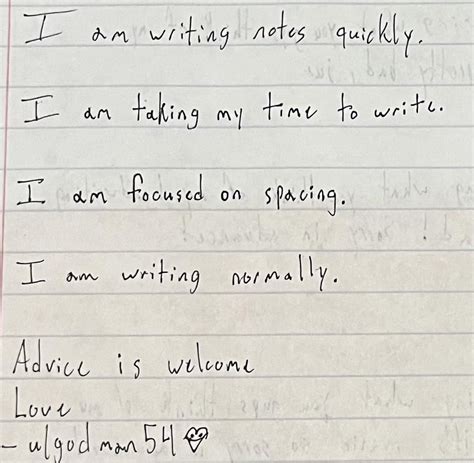 I am writing notes quickly.
I am taking my time to write.
I am focused on spacing.
I am writing normally.
Advice is welcome
Love
- ulgodman54